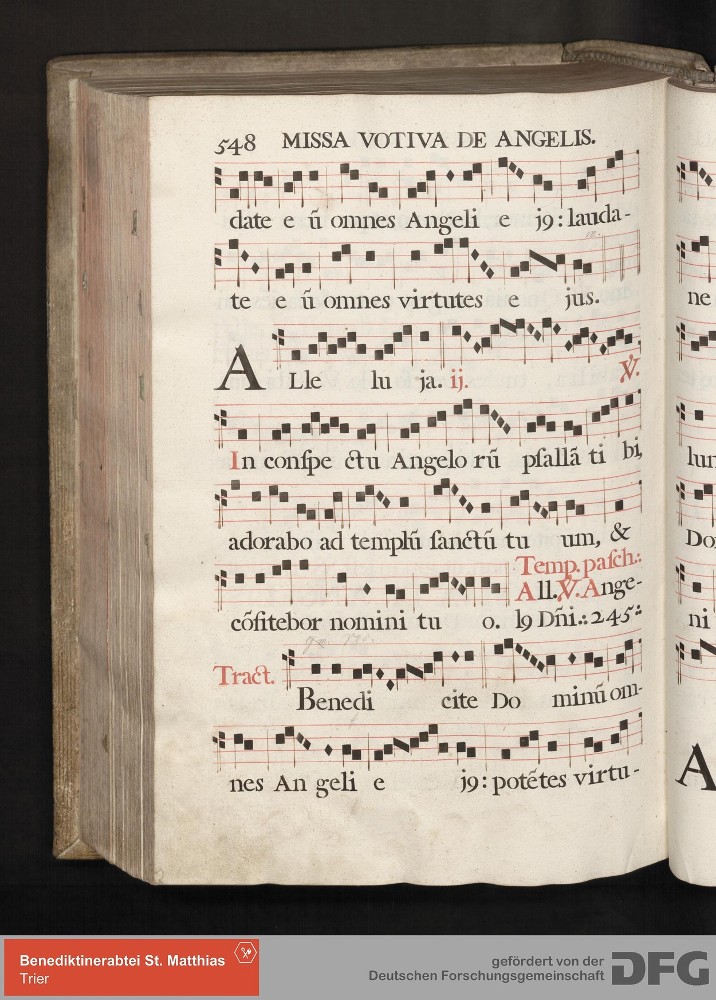 548 MISSA VOTIVA DE ANGELIS.
date e ũ omnes Angeli e j9: lauda-
te e ũ omnes virtutes e jus.
ALle lu ja. ij. ℣.
In conſpe ctu Angelo rũ pſallã ti bi,
adorabo ad templũ ſanctũ tu um, &
Temp. paſch.:
All. ℣. Ange-
cõfitebor nomini tu o. l9 Dñi.: 245:
Tract.
Benedi cite Do minũ om-
nes An geli e j9: potẽtes virtu-
ne
lun
Do
ni
A
Benediktinerabtei St. Matthias
Trier
gefördert von der
Deutschen Forschungsgemeinschaft
DFG